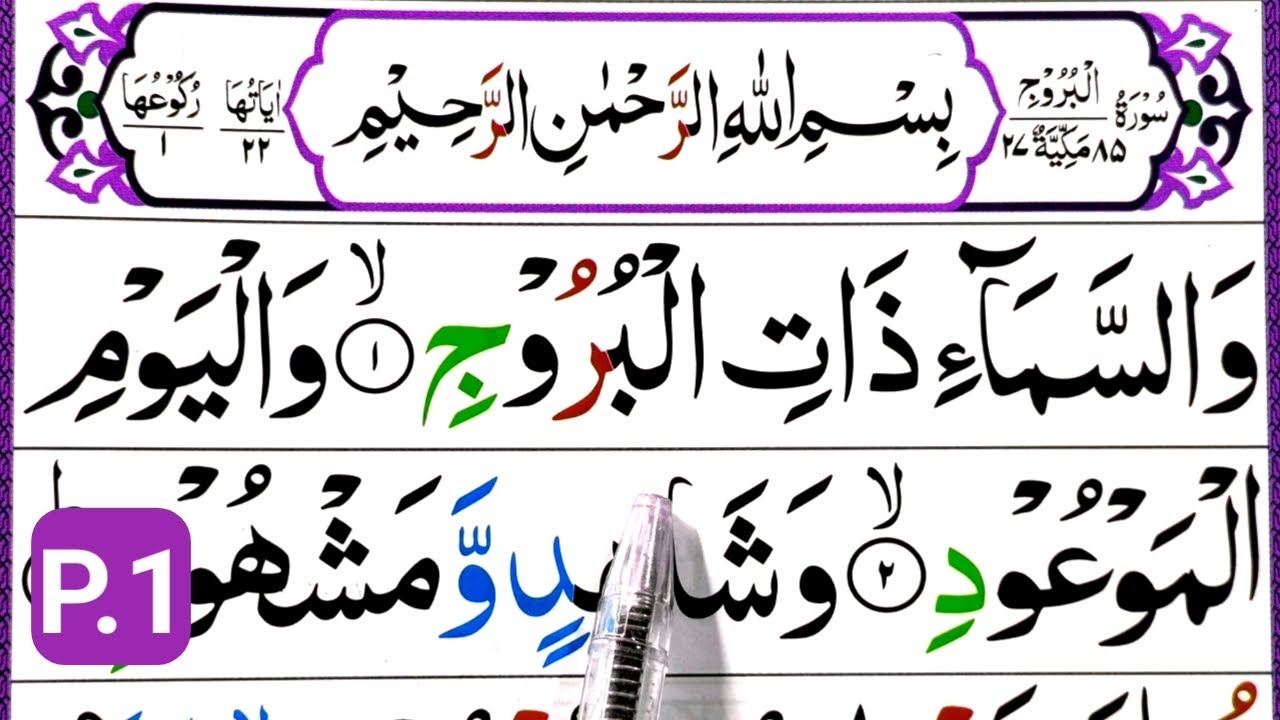 سُوْرَةُ الْبُرُوْجِ
٨٥ مَكِّيَّةٌ ٢٧
بِسْمِ اللّٰهِ الرَّحْمٰنِ الرَّحِيْمِ
اٰيَاتُهَا ٢٢
رُكُوْعُهَا ١
وَالسَّمَآءِ ذَاتِ الْبُرُوْجِ ۙ﴿١﴾ وَالْيَوْمِ
الْمَوْعُوْدِ ۙ﴿٢﴾ وَ وَّ
P.1